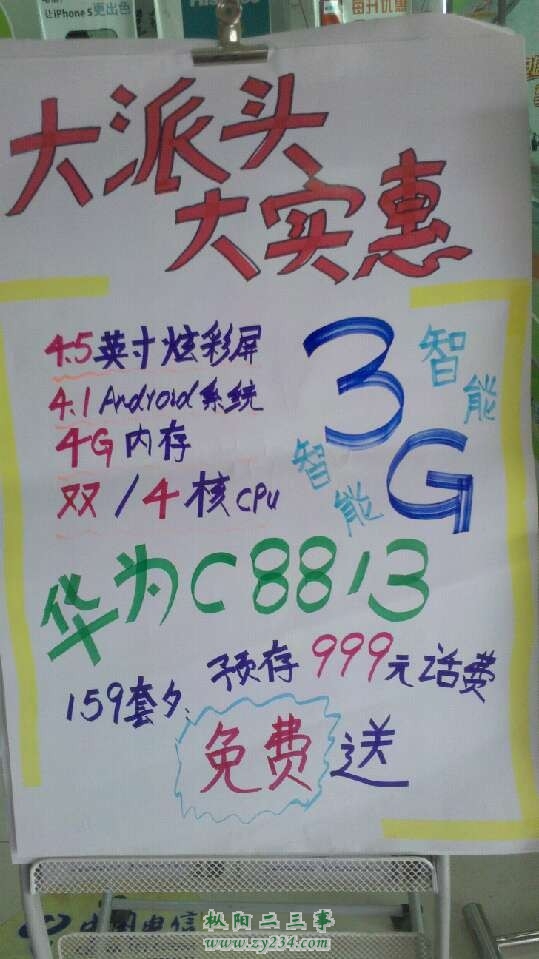 让iPhone 5更出色
大派头
大实惠
4.5英寸炫彩屏
4.1Android系统
4G内存
双/4核CPU
3G
智能
智能
华为C8813
预存999元话费
159套夕
免费送
中国电信
枞阳二三事
www.zy234.com